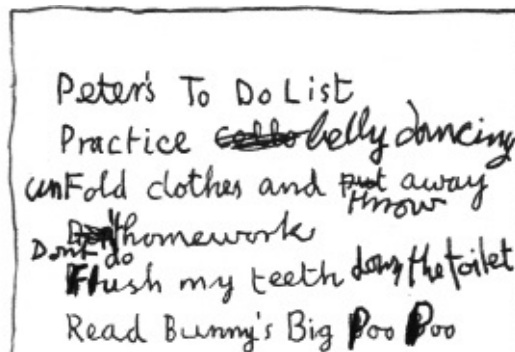 Peter's To Do List
Practice Cello belly dancing
unFold clothes and put throw away
Don't do homework
Flush my teeth down the toilet
Read Bunny's Big Poo Poo